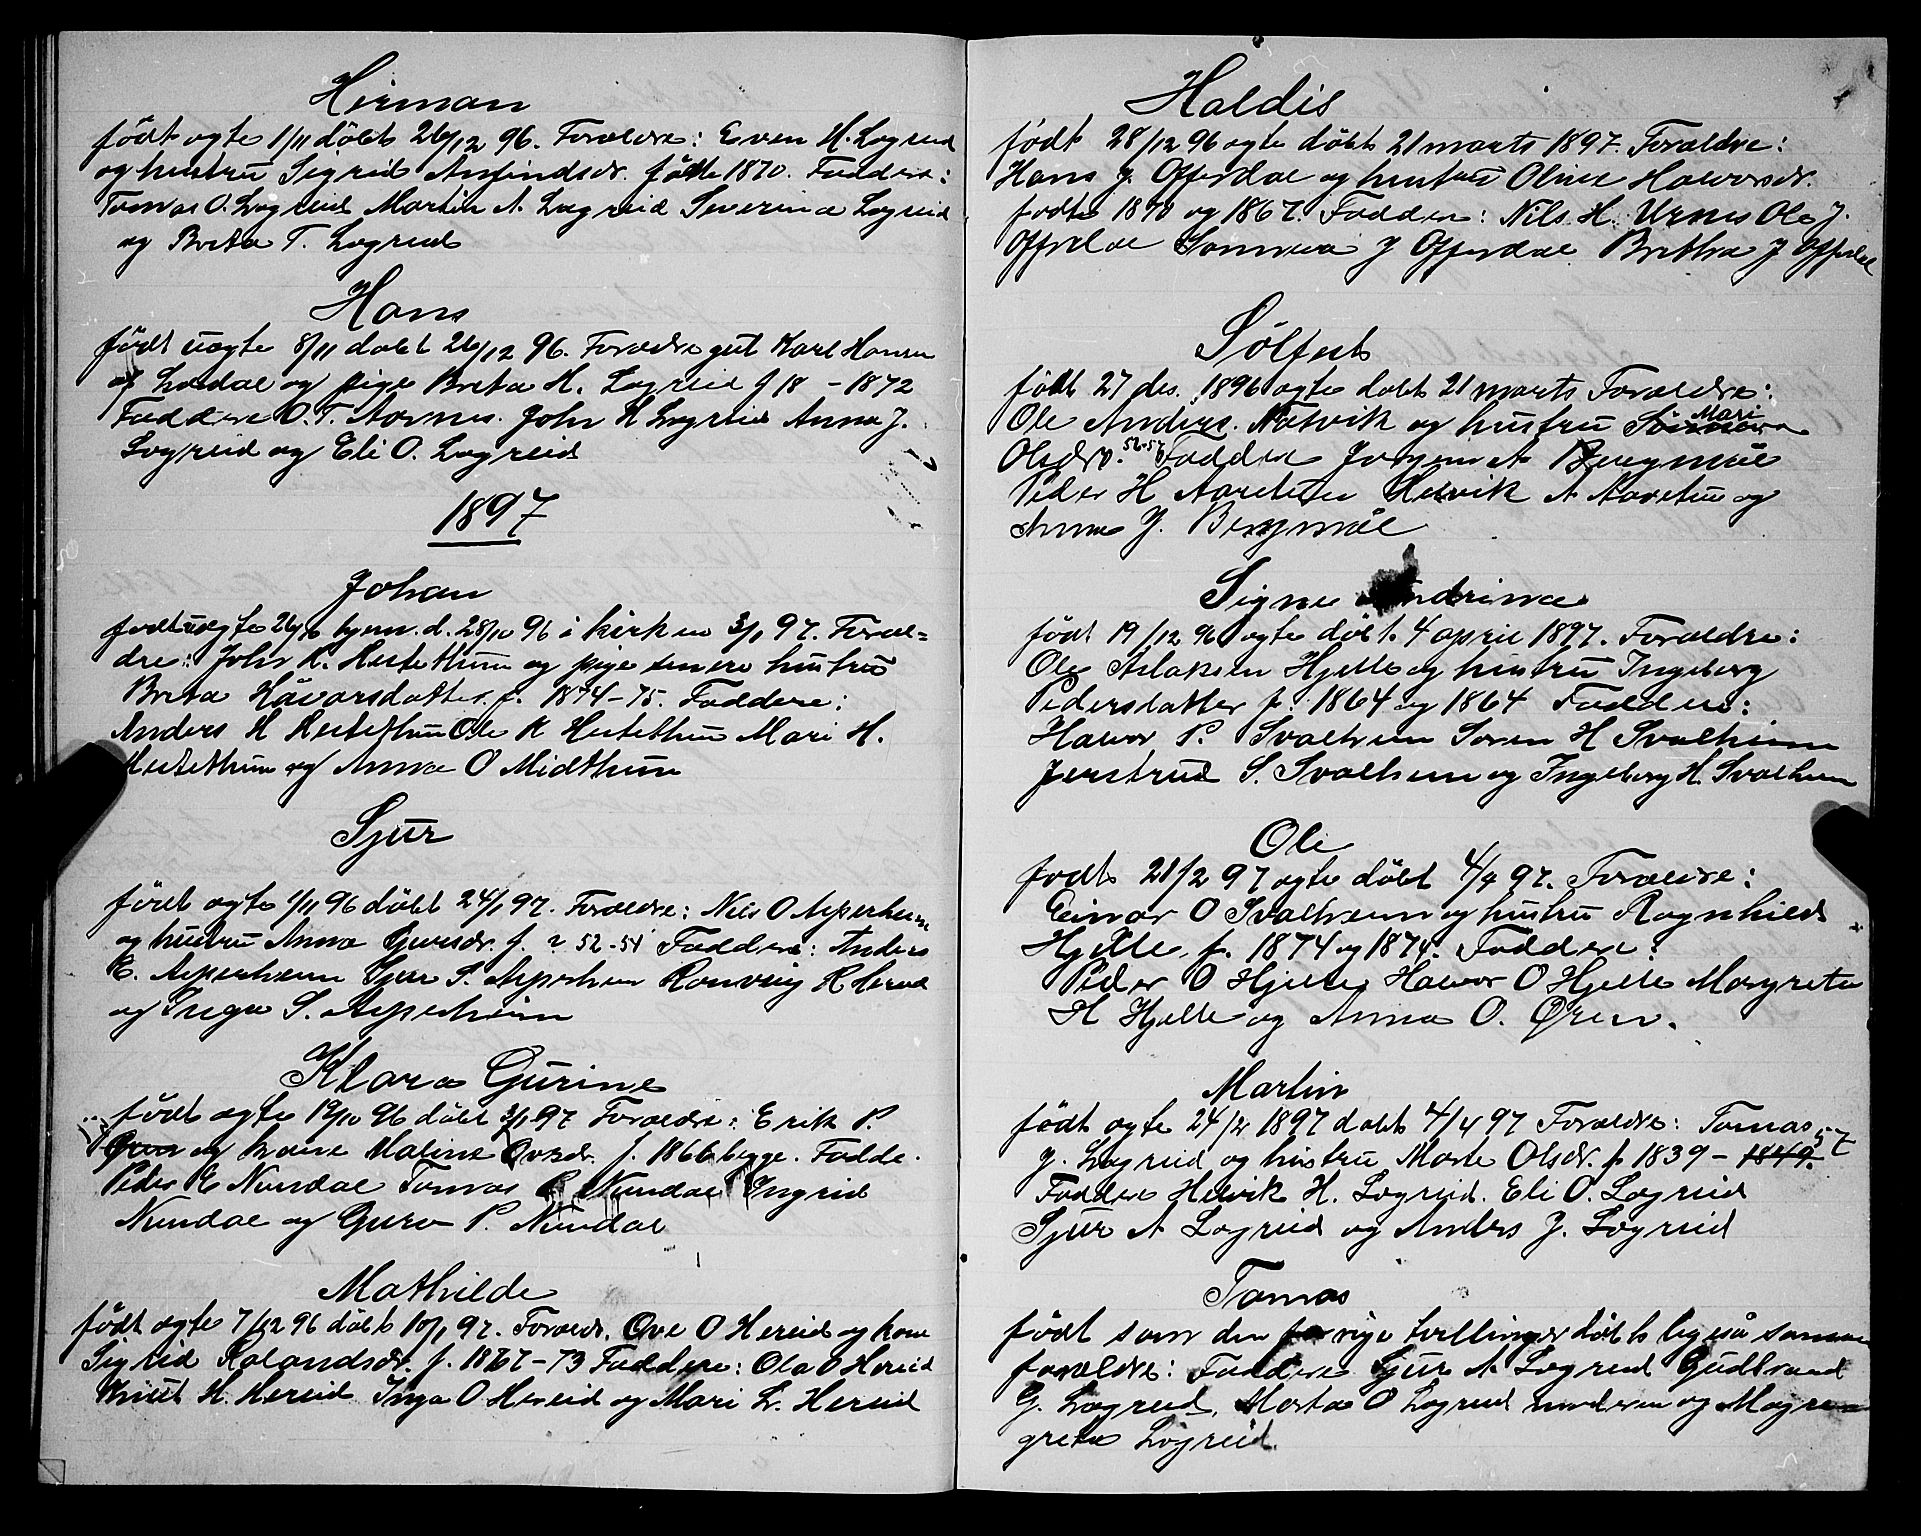 Herman
født ægte 1/11 døbt 26/12 96. Forældre: Even H. Lægreid
og hustru Sigrid Anfindsdr. fødte 1870. Faddere:
Tomas O. Lægreid Martin A Lægreid Severina Lægreid
og Breta T. Lægreid
Hans
født uægte 8/11 døbt 26/12 96. Forældre gut Karl Hansen
af Lærdal og pige Breta H. Lægreid f 18 - 1872
Faddere O. T. Aarnes. John H Lægreid Anna J.
Lægreid og Eli O. Lægreid
1897
Johan
født uægte 26/10 hjem. d. 28/10 96 i kirken 3/1 97. Foræl=
dre: John K. Hestethun og pige senere hustru
Breta Håvarsdatter. f. 1874-75. Faddere:
Anders H Hestethun Ole K Hestethun Mari H.
Hestethun og Anna O Midthun
Sjur
født ægte 1/11 96 døbt 24/1 97. Forældre: Nils O Asperheim
og hustru Anna Sjursdr. f. 52-54 Faddere: Anders
E. Asperheim Sjur S. Asperheim Ronveig H Hereid
og Inga S. Asperheim
Klara Gurine
født ægte 19/10 96 døbt 3/1 97 Forældre: Erik P.
og kone Maline Ovedr. f. 1866 begge. Fadde.
Peder E Nundal Tomas Nundal Ingrid
Nundal og Guro P. Nundal
Mathilde
født ægte 7/12 96 døbt 10/1 97. Forældr. Ove O Hereid og kone
Sigrid Rolandsdr. f. 1867-73 Faddere: Ola O Hereid
Knut H. Hereid Inga O Hereid og Mari L. Hereid
Haldis
født 28/12 96 ægte døbt 21 marts 1897. Forældre:
Hans J. Offerdal og hustru Oline Haavorsdr.
fødte 1870 og 1867. Faddere: Nils H. Urnes Ole J.
Offerdal Sønneva J Offerdal Britha J Offerdal
Sølfest
født 27 des. 1896 ægte døbt 21 marts Forældre:
Ole Anders. Natvik og hustru Sønneva Mari
Olsdr. 52-57 Faddere Jørgen A Bergmål
Peder H Aaretun Helvik A Aaretun og
Anna J. Bergmål
Signe Andrina
født 19/12 96 ægte døbt. 4 april 1897. Forældre:
Ole Aslaksen Hjelle og hustru Ingeborg
Pedersdatter f. 1864 og 1864 Faddere:
Havor P. Svalheim Søren H Svalheim
Jerstrud S. Svalheim og Ingeborg H. Svalheim
Ole
født 21/2 97 ægte døbt 4/4 97. Forældre:
Einar O Svalheim og hustru Ragnhild
Hjelle f. 1874 og 1874. Faddere:
Peder O Hjelle Havor O Hjelle Margreta
H Hjelle og Anna O. Øren.
Martin
født ægte 24/2 1897 døbt 4/4 97 Forældre: Tomas
J. Lægreid og hustru Marte Olsdr. f 1839 - 1849. 57
Faddere Helvik H. Lægreid. Eli O. Lægreid
Sjur A Lægreid og Anders J. Lægreid
Tomas
født som den forrige tvillinger døbt ligeså samme
forældre: Faddere Sjur A Lægreid Gudbrand
G. Lægreid, Marta O Lægreid moderen og Mag
greta Lægreid.